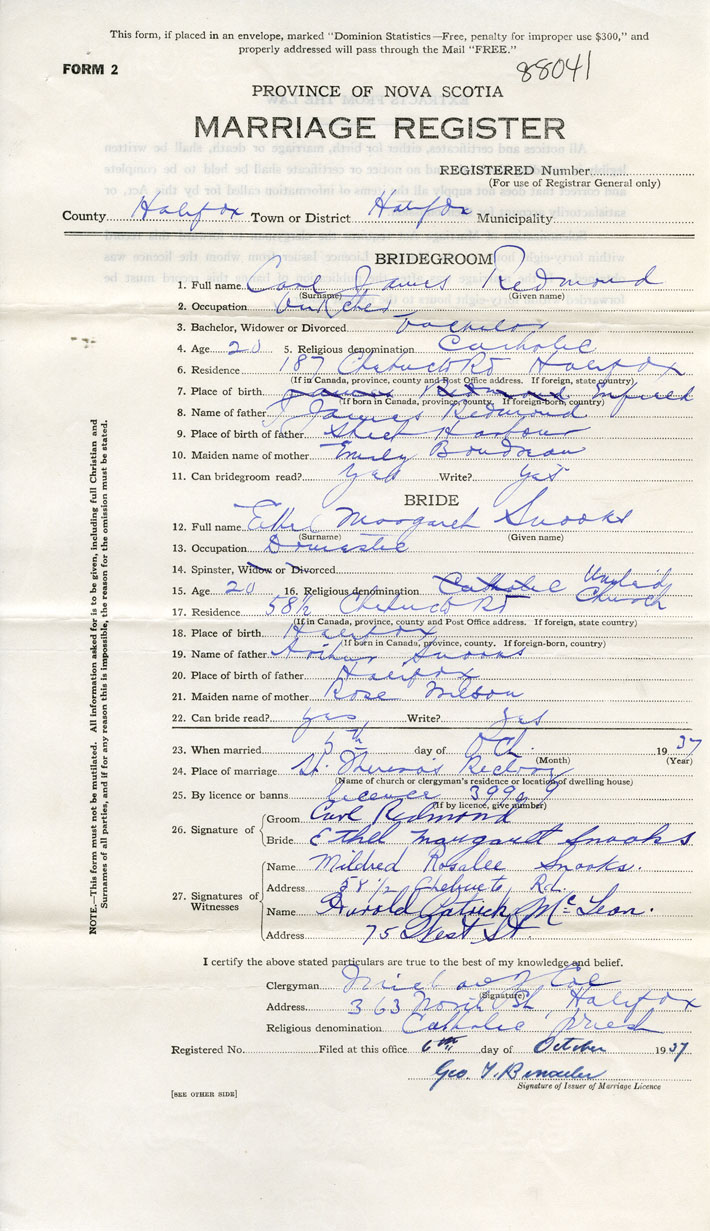 This form, if placed in an envelope, marked "Dominion Statistics—Free, penalty for improper use $300," and
properly addressed will pass through the Mail "FREE."
FORM 2
88041
PROVINCE OF NOVA SCOTIA
MARRIAGE REGISTER
REGISTERED Number
(For use of Registrar General only)
County Halifax Town or District Halifax Municipality
BRIDEGROOM
1. Full name Carl James Redmond
(Surname) (Given name)
2. Occupation Butcher
3. Bachelor, Widower or Divorced bachelor
4. Age 20 5. Religious denomination Catholic
6. Residence 187 Chebucto Rd Halifax
(If in Canada, province, county and Post Office address. If foreign, state country)
7. Place of birth James Redmond
(If born in Canada, province, county. If foreign-born, country)
8. Name of father James Redmond
9. Place of birth of father Sheet Harbour
10. Maiden name of mother Emily Boudreau
11. Can bridegroom read? yes Write? yes
BRIDE
12. Full name Ethel Margaret Snooks
(Surname) (Given name)
13. Occupation Domestic
14. Spinster, Widow or Divorced
15. Age 20 16. Religious denomination Catholic United Church
17. Residence 58½ Chebucto Rd
(If in Canada, province, county and Post Office address. If foreign, state country)
18. Place of birth Halifax
(If born in Canada, province, county. If foreign-born, country)
19. Name of father Arthur Snooks
20. Place of birth of father Halifax
21. Maiden name of mother Rose Wilson
22. Can bride read? yes Write? yes
23. When married 5th day of Oct. 1937
(Month) (Year)
24. Place of marriage St. Theresa's Rectory
(Name of church or clergyman's residence or location of dwelling house)
25. By licence or banns licence 3999
(If by licence, give number)
26. Signature of
Groom Carl Redmond
Bride Ethel Margaret Snooks
27. Signatures of Witnesses
Name Mildred Rosalee Snooks.
Address 58 1/2 Chebucto Rd.
Name Harold Patrick McLean.
Address 75 West St.
I certify the above stated particulars are true to the best of my knowledge and belief.
Clergyman
(Signature)
Address 363 North St, Halifax
Religious denomination Catholic Priest
Registered No. Filed at this office 6th day of October 1937
Geo. T.
Signature of Issuer of Marriage Licence
[SEE OTHER SIDE]
NOTE.—This form must not be mutilated. All information asked for is to be given, including full Christian and
Surnames of all parties, and if for any reason this is impossible, the reason for the omission must be stated.